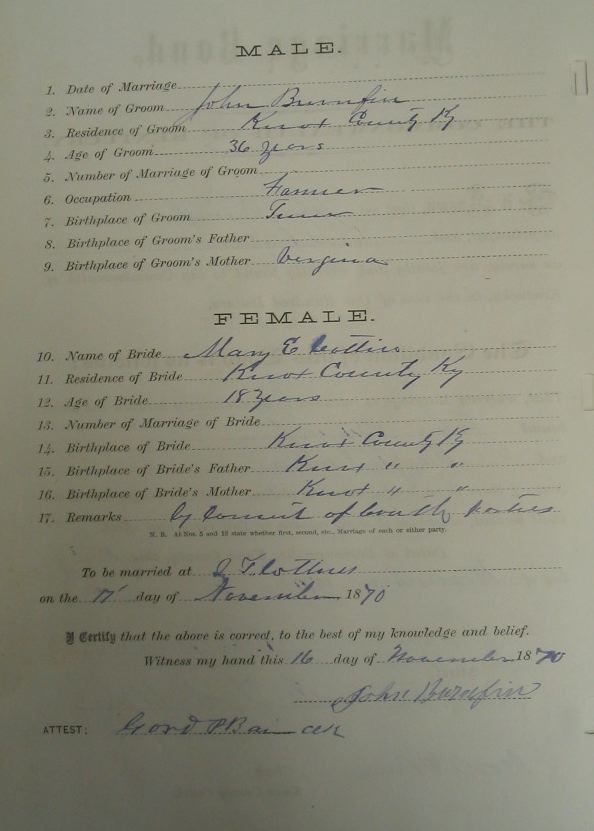 MALE.
1. Date of Marriage
2. Name of Groom John
3. Residence of Groom Knox County Ky
4. Age of Groom 36 years
5. Number of Marriage of Groom
6. Occupation Farmer
7. Birthplace of Groom Tenn
8. Birthplace of Groom's Father
9. Birthplace of Groom's Mother Virginia
FEMALE.
10. Name of Bride Mary E
11. Residence of Bride Knox County Ky
12. Age of Bride 18 years
13. Number of Marriage of Bride
14. Birthplace of Bride Knox County Ky
15. Birthplace of Bride's Father Knox " "
16. Birthplace of Bride's Mother Knox " "
17. Remarks by consent of both parties
N. B. At Nos. 5 and 13 state whether first, second, etc., Marriage of each or either party.
To be married at
on the 17 day of November 1870
I Certify that the above is correct, to the best of my knowledge and belief.
Witness my hand this 16 day of November 1870
John
ATTEST: